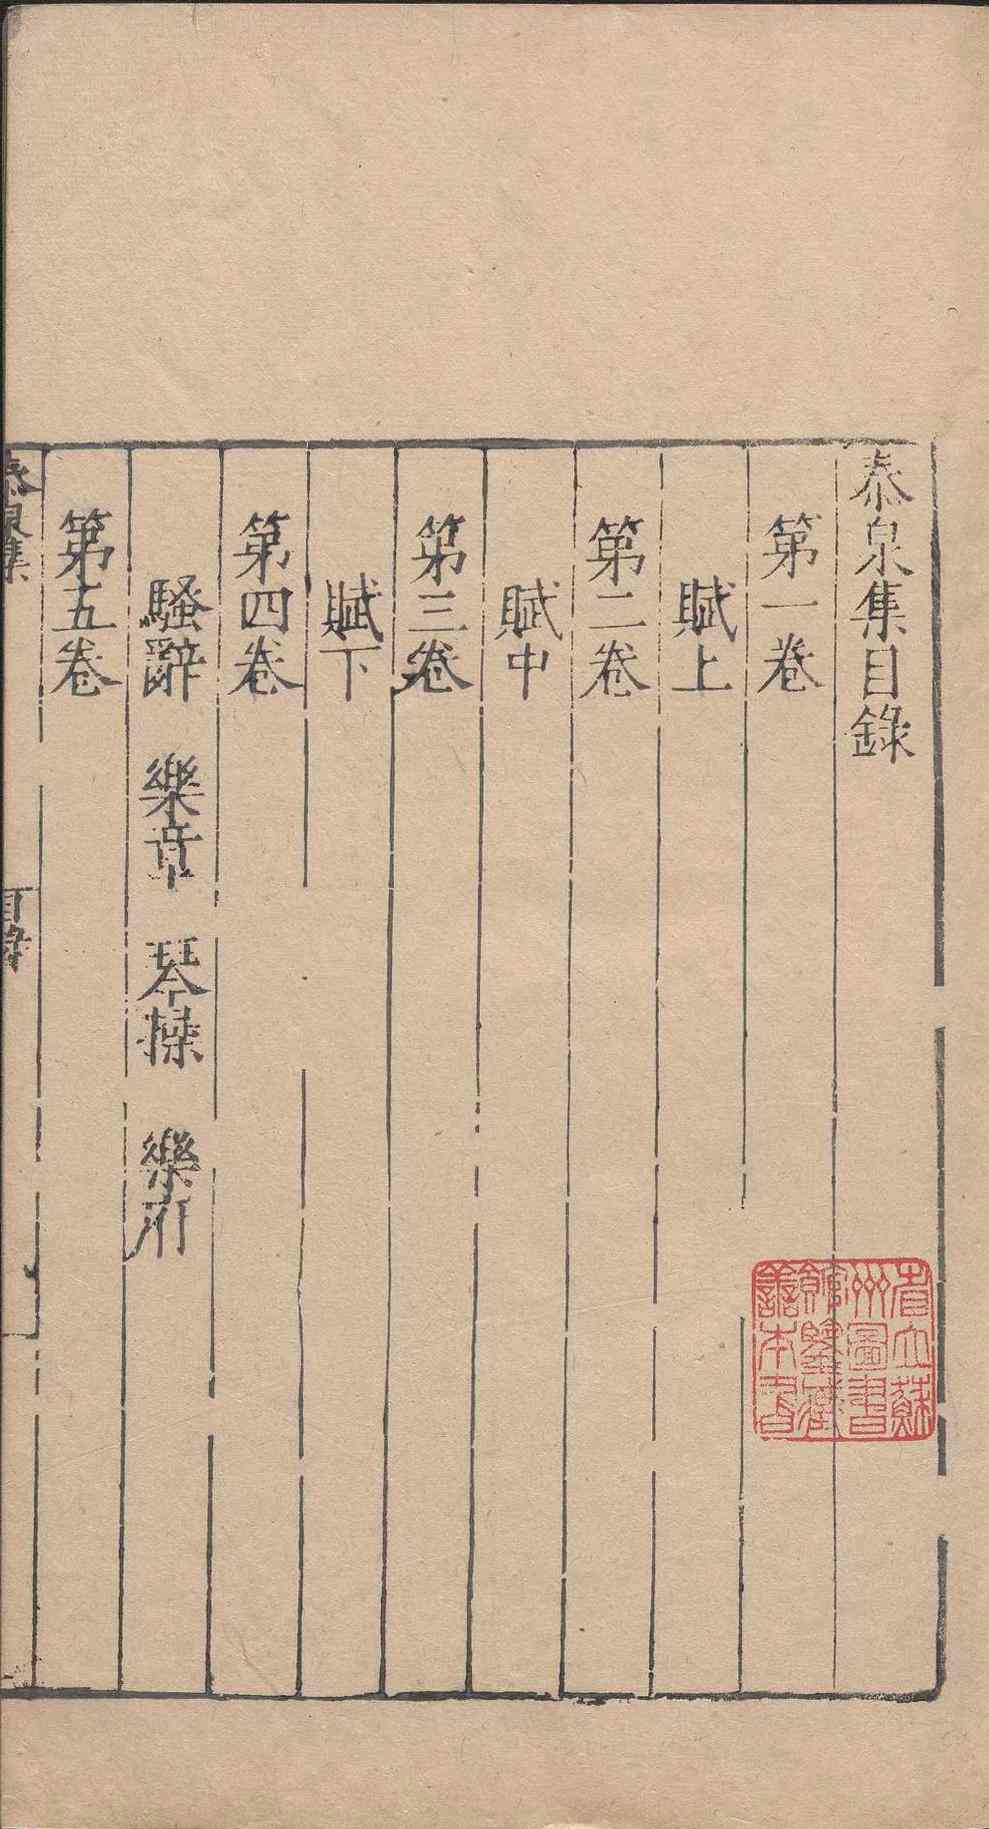 泰泉集目錄
第一卷
賦上
第二卷
賦中
第三卷
賦下
第四卷
騷辭　樂章　琴操　樂府
第五卷
泰泉集
目錄
一
省立蘇
州圖書
館鑒藏
善本書